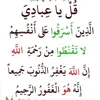 قُلْ يَا عِبَادِيَ
الَّذِينَ أَسْرَفُوا عَلَى أَنْفُسِهِمْ
لَا تَقْنَطُوا مِنْ رَحْمَةِ اللَّهِ
إِنَّ اللَّهَ يَغْفِرُ الذُّنُوبَ جَمِيعاً
إِنَّهُ هُوَ الْغَفُورُ الرَّحِيمُ